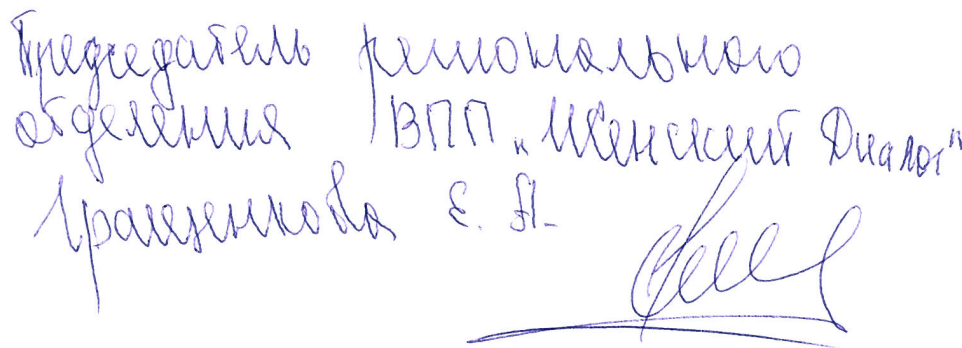 Председатель регионального
отделения ВПП „Женский Диалог"
Гращенкова Е. А.